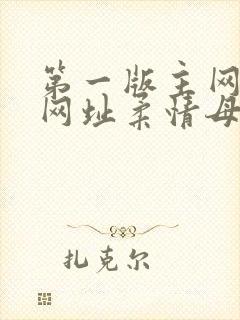 第一版主网
网址柔情母
扎克尔